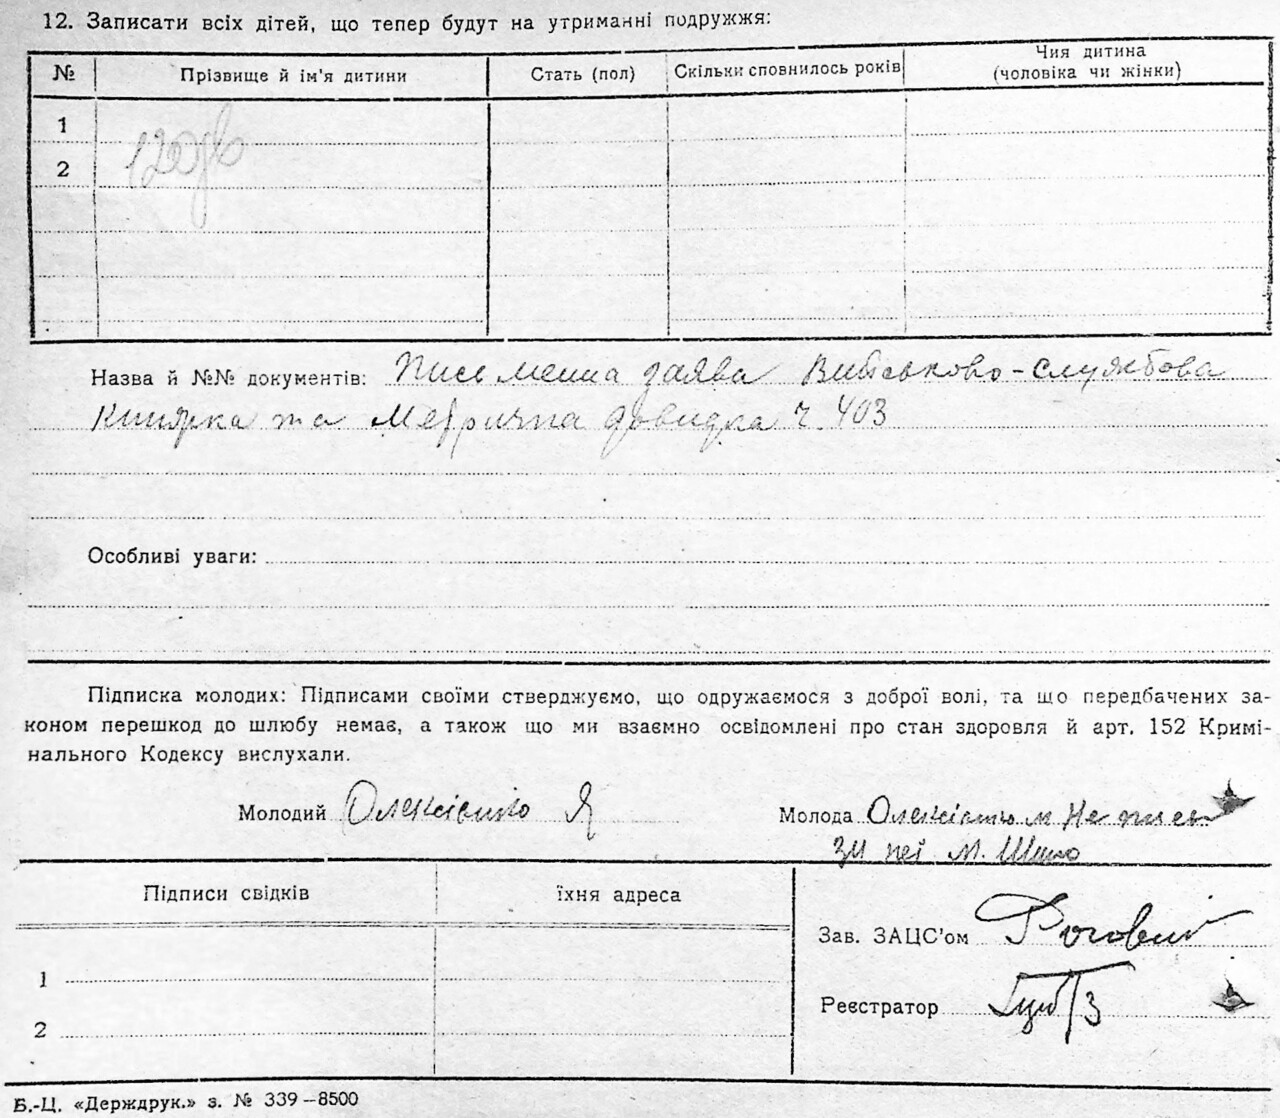 12. Записати всіх дітей, що тепер будут на утриманні подружжя:
№ Прізвище й ім'я дитини Стать (пол) Скільки сповнилось років Чия дитина (чоловіка чи жінки)
1
2
Назва й №№ документів: Письменна заява Військово-службова
Книжка та Метрична довидка ч. 403
Особливі уваги:
Підписка молодих: Підписами своїми стверджуємо, що одружаємося з доброї волі, та що передбачених за-
коном перешкод до шлюбу немає, а також що ми взаємно освідомлені про стан здоровля й арт. 152 Кримі-
нального Кодексу вислухали.
Молодий Олексієнко Я
Молода Олексієнко м Не писм
за неї М.
Підписи свідків їхня адреса
Зав. ЗАЦС'ом
1
Реєстратор
2
Б.-Ц. «Держдрук.» з. № 339—8500